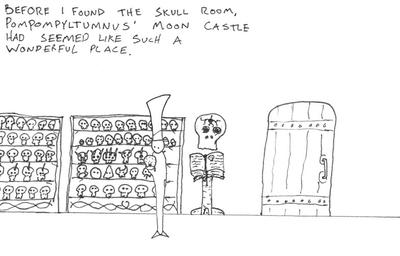 BEFORE I FOUND THE SKULL ROOM,
POMPOMPYLTUMNUS' MOON CASTLE
HAD SEEMED LIKE SUCH A
WONDERFUL PLACE.